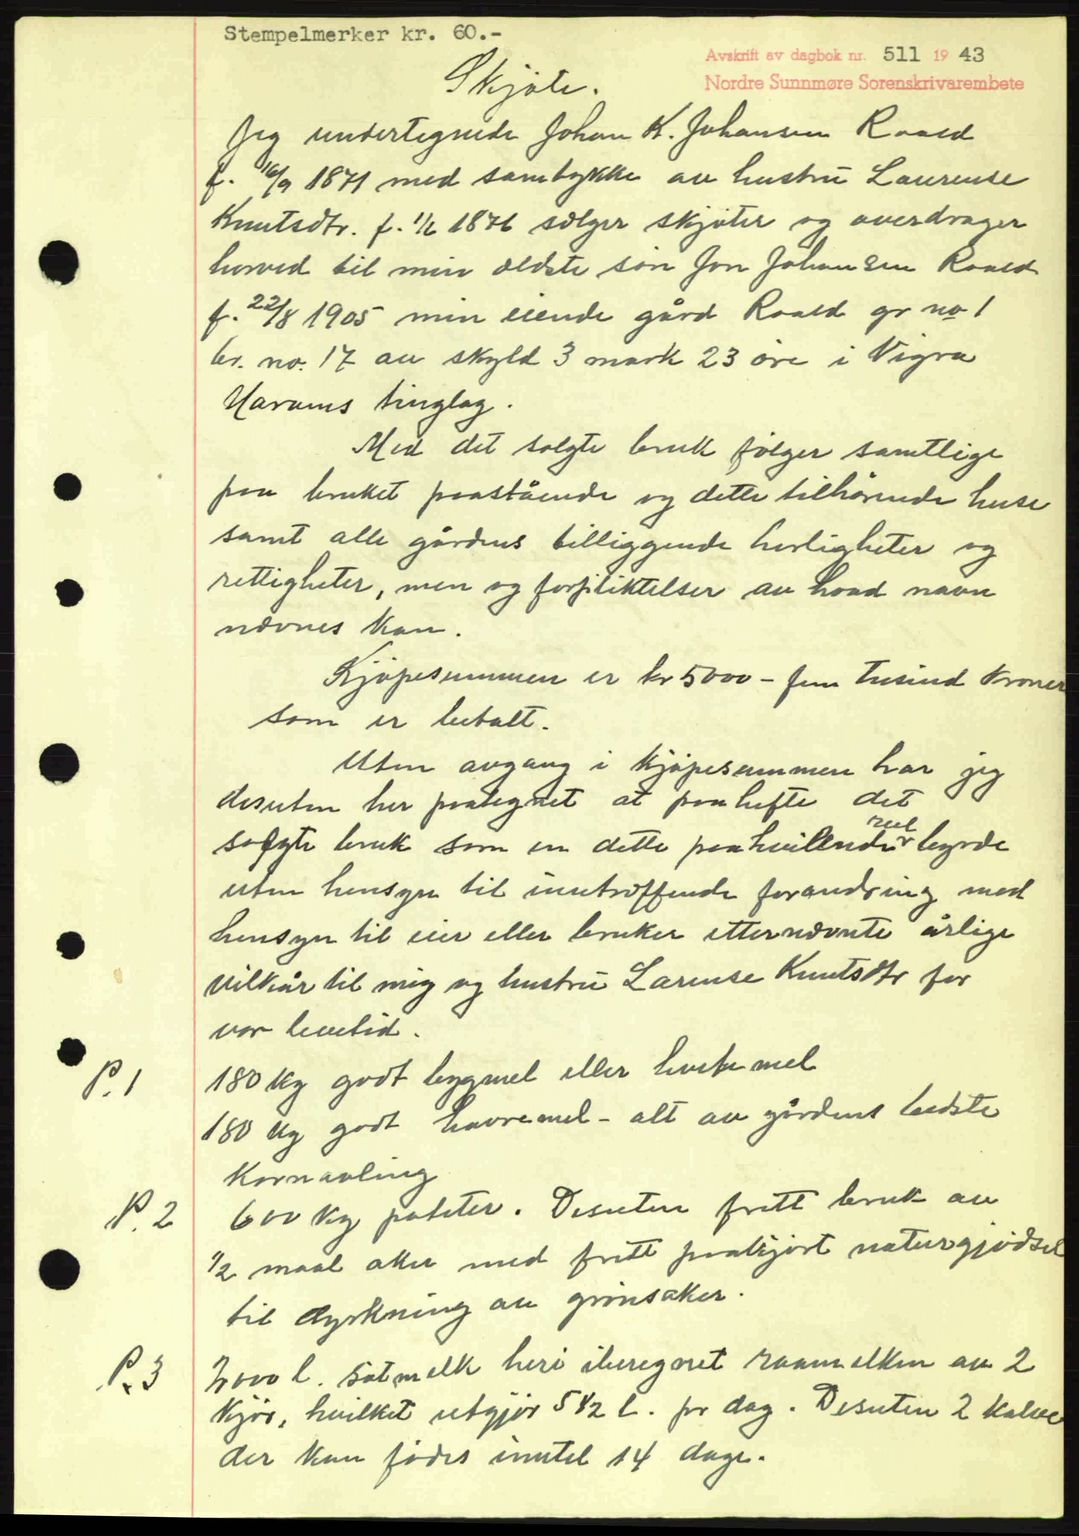 Stempelmerker kr. 60.-
Avskrift av dagbok nr. 511 1943
Nordre Sunnmøre Sorenskrivarembete
Skjøte.
Jeg undertegnede Johan K. Johansen Roald
f. 16/9 1871 med samtykke av hustru Laurense
Knutsdtr. f. 1/6 1876 sælger skjøter og overdrager
herved til min ældste søn Jon Johansen Roald
f. 22/8 1905 min eiende gård Roald gr no 1
br. no. 17 av skyld 3 mark 23 øre i Vigra
Harams tinglag.
Med det solgte bruk følger samtlige
paa bruket paastående og dette tilhørende huse
samt alle gårdens tilliggende herligheter og
rettigheter, men og forpliktelser av hvad navn
nævnes kan.
Kjøpesummen er kr 5000 - fem tusind kroner
som er betalt.
Uten avgang i kjøpesummen har jeg
desuten her paategnet at paahefte det
solgte bruk som en dette paahvilende reel byrde
uten hensyn til indtræffende forandring med
hensyn til eier eller bruker etternævnte årlige
vilkår til mig og hustru Larense Knutsdtr for
vor levetid.
P. 1 180 kg godt bygmel eller hvetemel
180 kg godt havremel - alt av gårdens bedste
kornavling
P. 2 600 kg poteter. Desuten fritt bruk av
1/2 maal aker med fritt paakjørt naturgjødsel
til dyrkning av grønsaker.
P. 3 2000 l. søtmelk heri iberegnet raamelken av 2
kjør, hvilket utgjør 5 1/2 l. pr dag. Desuten 2 kalve
der kan fødes inntil 14 dage.